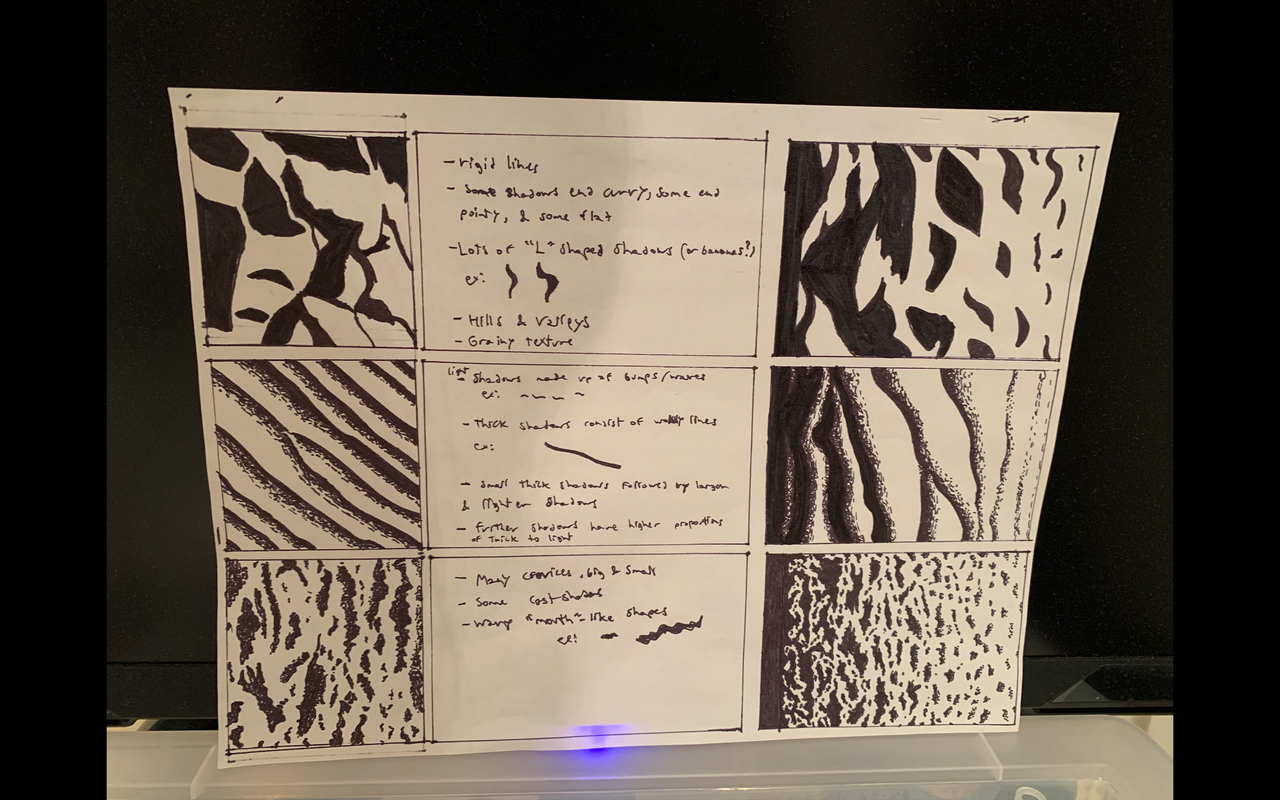 - rigid lines
- Some shadows end curvy, some end
pointy, & some flat
- Lots of "L" shaped shadows (or bananas?)
ex:
- Hills & valleys
- Grainy texture
light
- Shadows made up of bumps/waves
ex:
- Thick shadows consist of wobbly lines
ex:
- Small thick shadows followed by larger
& lighter shadows
- further shadows have higher proportions
of thick to light
- Many crevices, big & small
- Some cast shadows
- Wavy "mouth"-like shapes
ex: